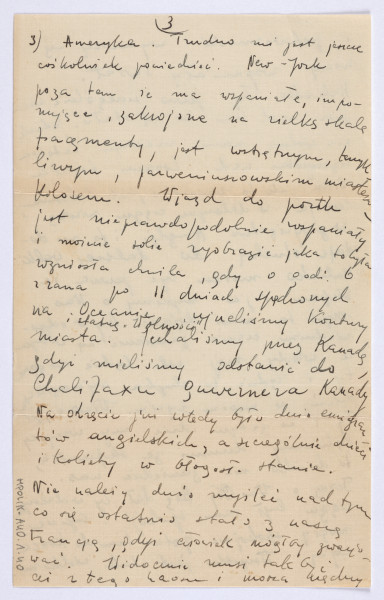 3
3) Ameryka. Trudno mi jest jeszcze
cośkolwiek powiedzieć. New-York
poza tam że ma wspaniałe, impo-
nujące, zakrojone na wielką skalę
fragmenty, jest wstrętnym, krzyk-
liwym, parweniuszowskim miastem
kolosem. Wjazd do portu
jest nieprawdopodobnie wspaniały
i możecie sobie wyobrazić jaka to była
wzniosła chwila, gdy o godz. 6
z rana po 11 dniach spędzonych
na Oceanie ujrzeliśmy kontury
i statuę Wolności
miasta. Jechaliśmy przez Kanadę,
gdyż mieliśmy odstawić do
Chalifaxu guwernera Kanady
Na okręcie już wtedy było dużo emigran
tów angielskich, a szczególnie dzieci
i kobiety w błogosł. stanie.
Nie należy dużo myśleć nad tym
co się ostatnio stało z naszą
Francją, gdyż człowiek mógłby zwarjo-
wać. Widocznie musi tak być
i z tego chaosu i morza